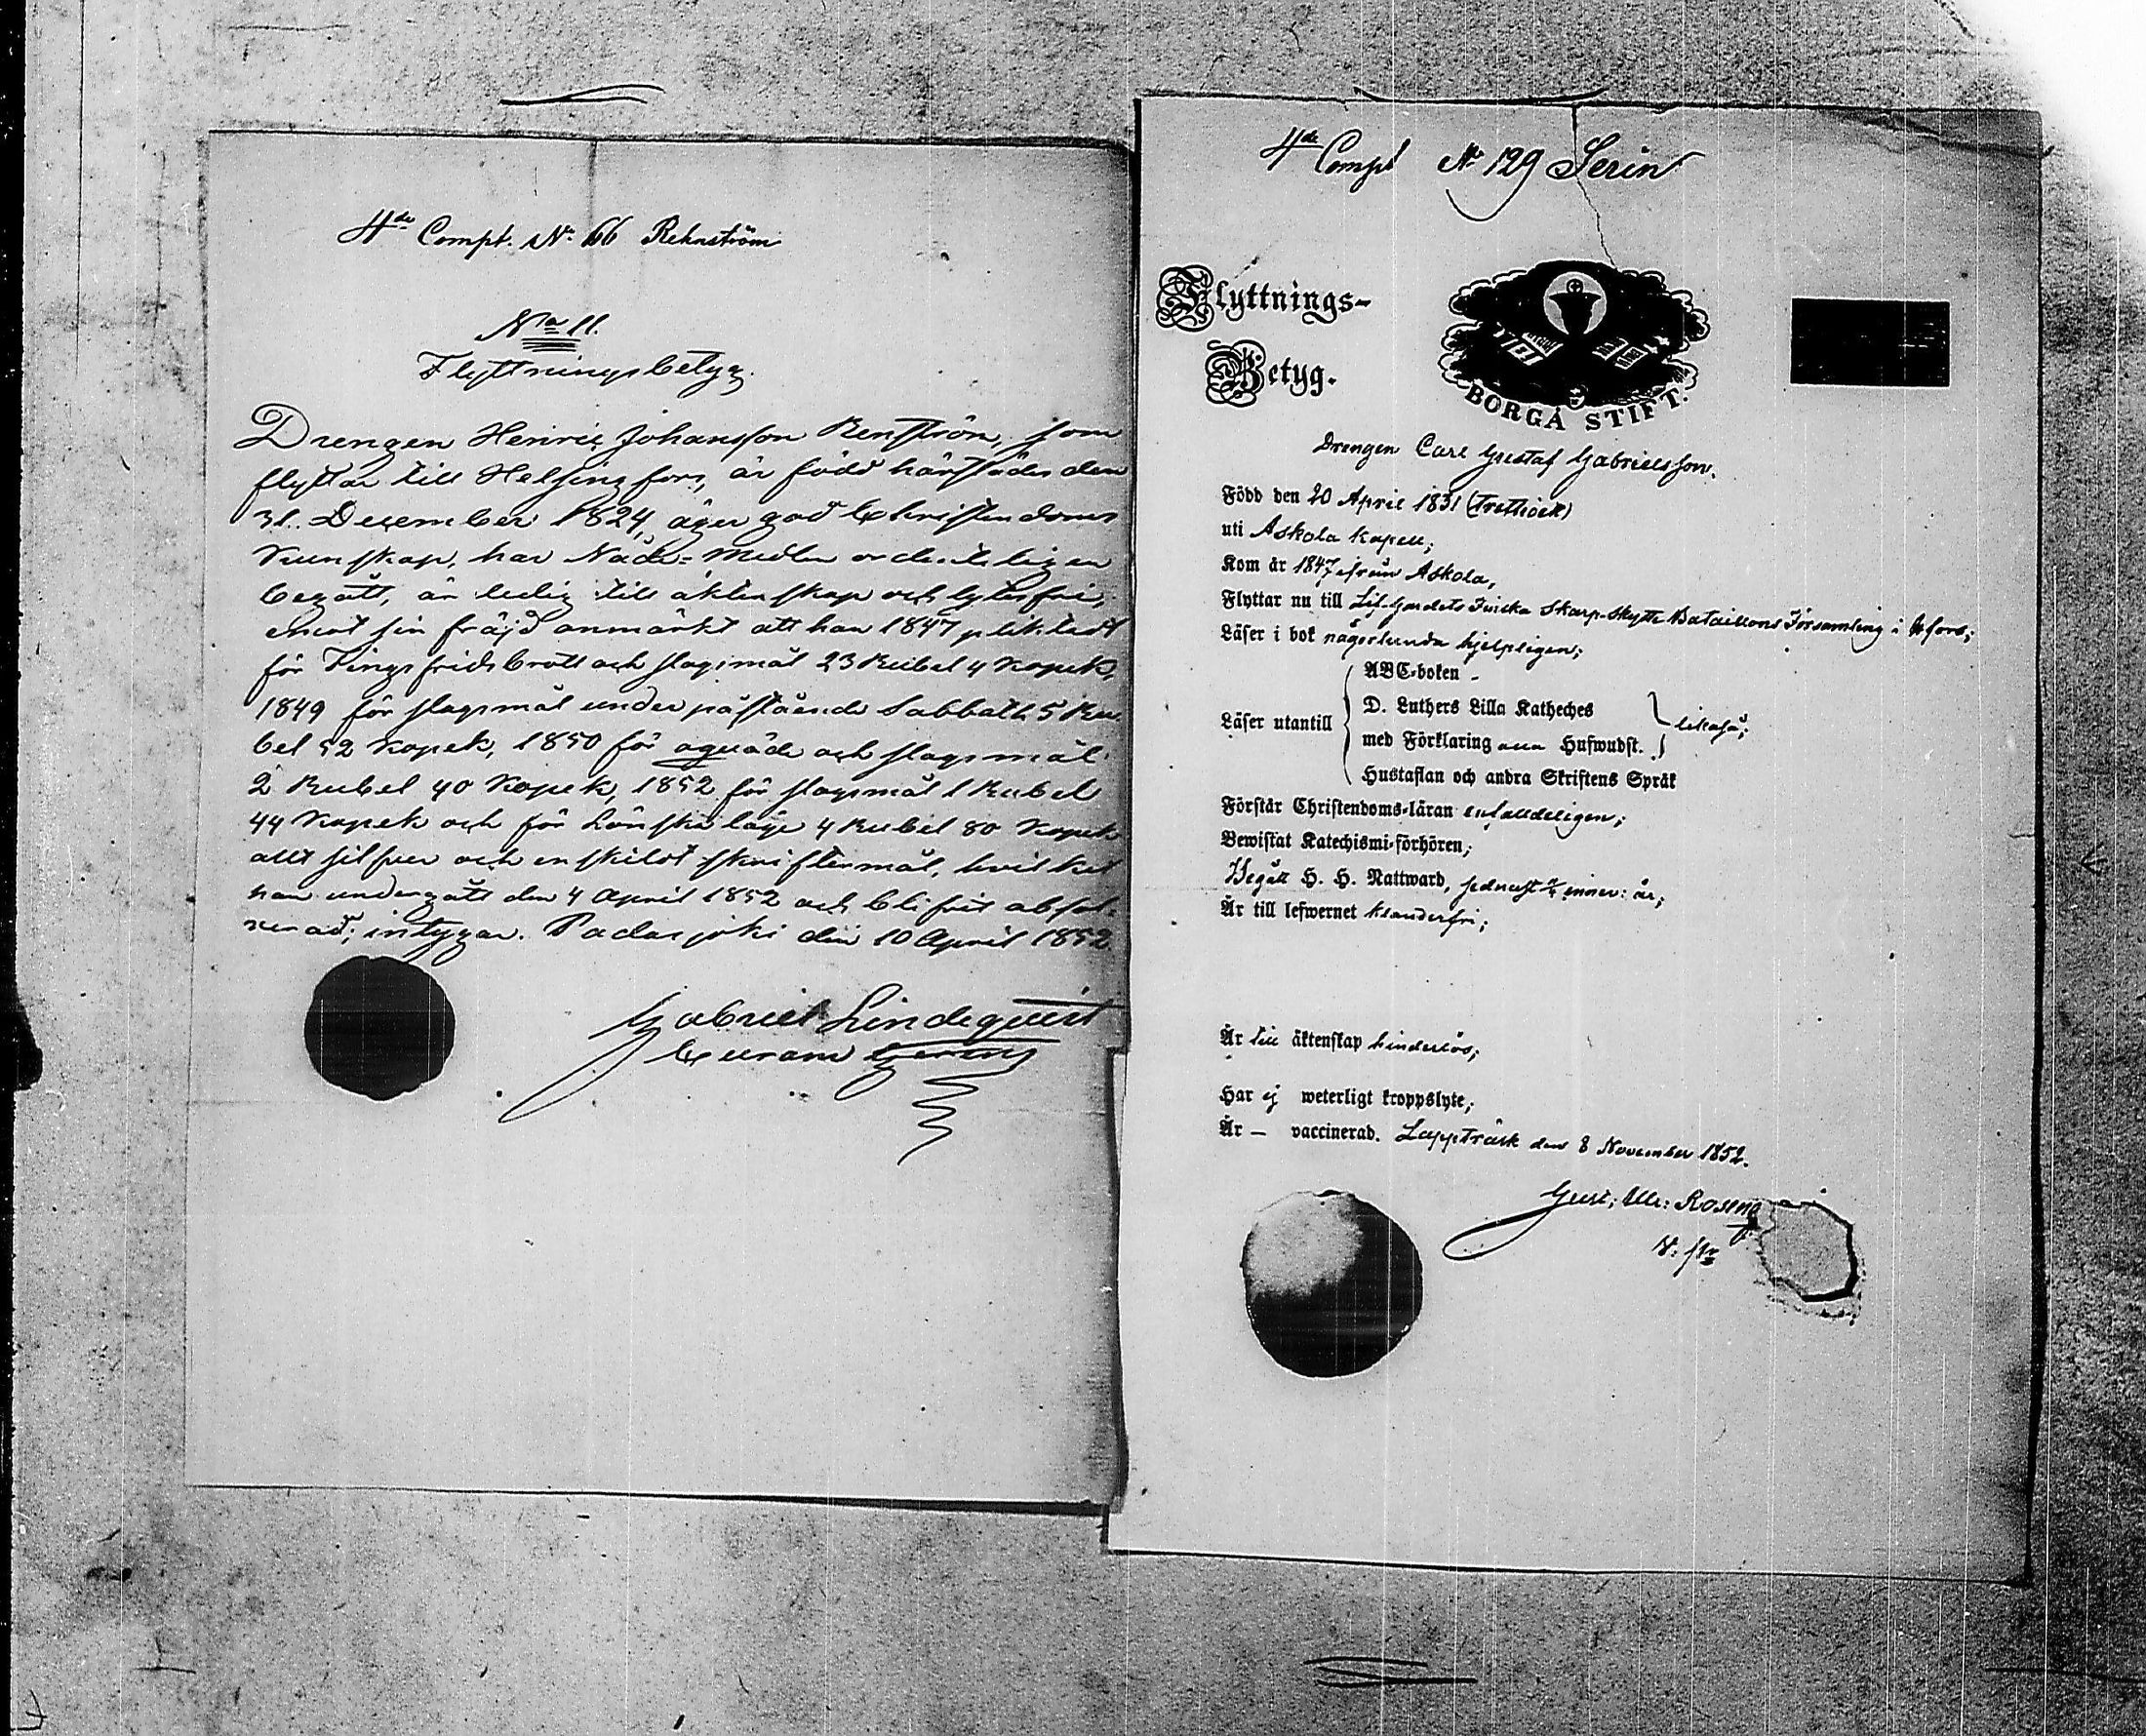 4de Compt. No 66 Rehnström
No 11.
Flyttningsbetyg.
Drengen Henric Johansson Renström, som
flyttar till Helsingfors, är född härstädes den
31. December 1824, äger god Christendoms
kunskap, har Nåde-medlen ordenteligen
begått, är ledig till äktenskap och lytesfri,
emot sin fräjd anmärkt att han 1847 pliktadt
för Tingsfridsbrott och slagsmål 23 Rubel 4 Kopek,
1849 för slagsmål under påstående Sabbath 5 Ru-
bel 52 Kopek, 1850 för oqväde och slagsmål
2 Rubel 40 Kopek, 1852 för slagsmål 1 Rubel
44 Kopek och för Lönskaläge 4 Rubel 80 Kopek
allt silfver och enskildt skriftermål, hvilket
han undergått den 4 April 1852 och blifvit absol-
verad; intygar. Padasjoki den 10 April 1852
Gabriel Lindeqvist
Curam gerens
4de Compt No 129 Serin
Flyttnings-
Betyg.
BORGÅ STIFT.
Drengen Carl Gustaf Gabrielsson,
Född den 20 April 1831 (trettioett)
uti Askola kapell;
Kom år 1847 ifrån Askola,
Flyttar nu till Lif-Gardets Finska Skarp-skytte Bataillons Församling i H:fors;
Läser i bok någorlunda hjelpligen;
Läser utantill
ABC-boken -
D. Luthers Lilla Katheches
med Förklaring Hufwudst.
likaså;
Hustaflan och andra Skriftens Språk
Förstår Christendoms-läran enfalldeligen;
Bewistat Katechismi-förhören;
Begått H. H. Nattward, sednast inner: år;
Är till lefwernet klanderfri;
Är till äktenskap hinderlös;
Har ej weterligt kroppslyte;
Är — vaccinerad. Lappträsk den 8 November 1852.
Gust: Ulr: